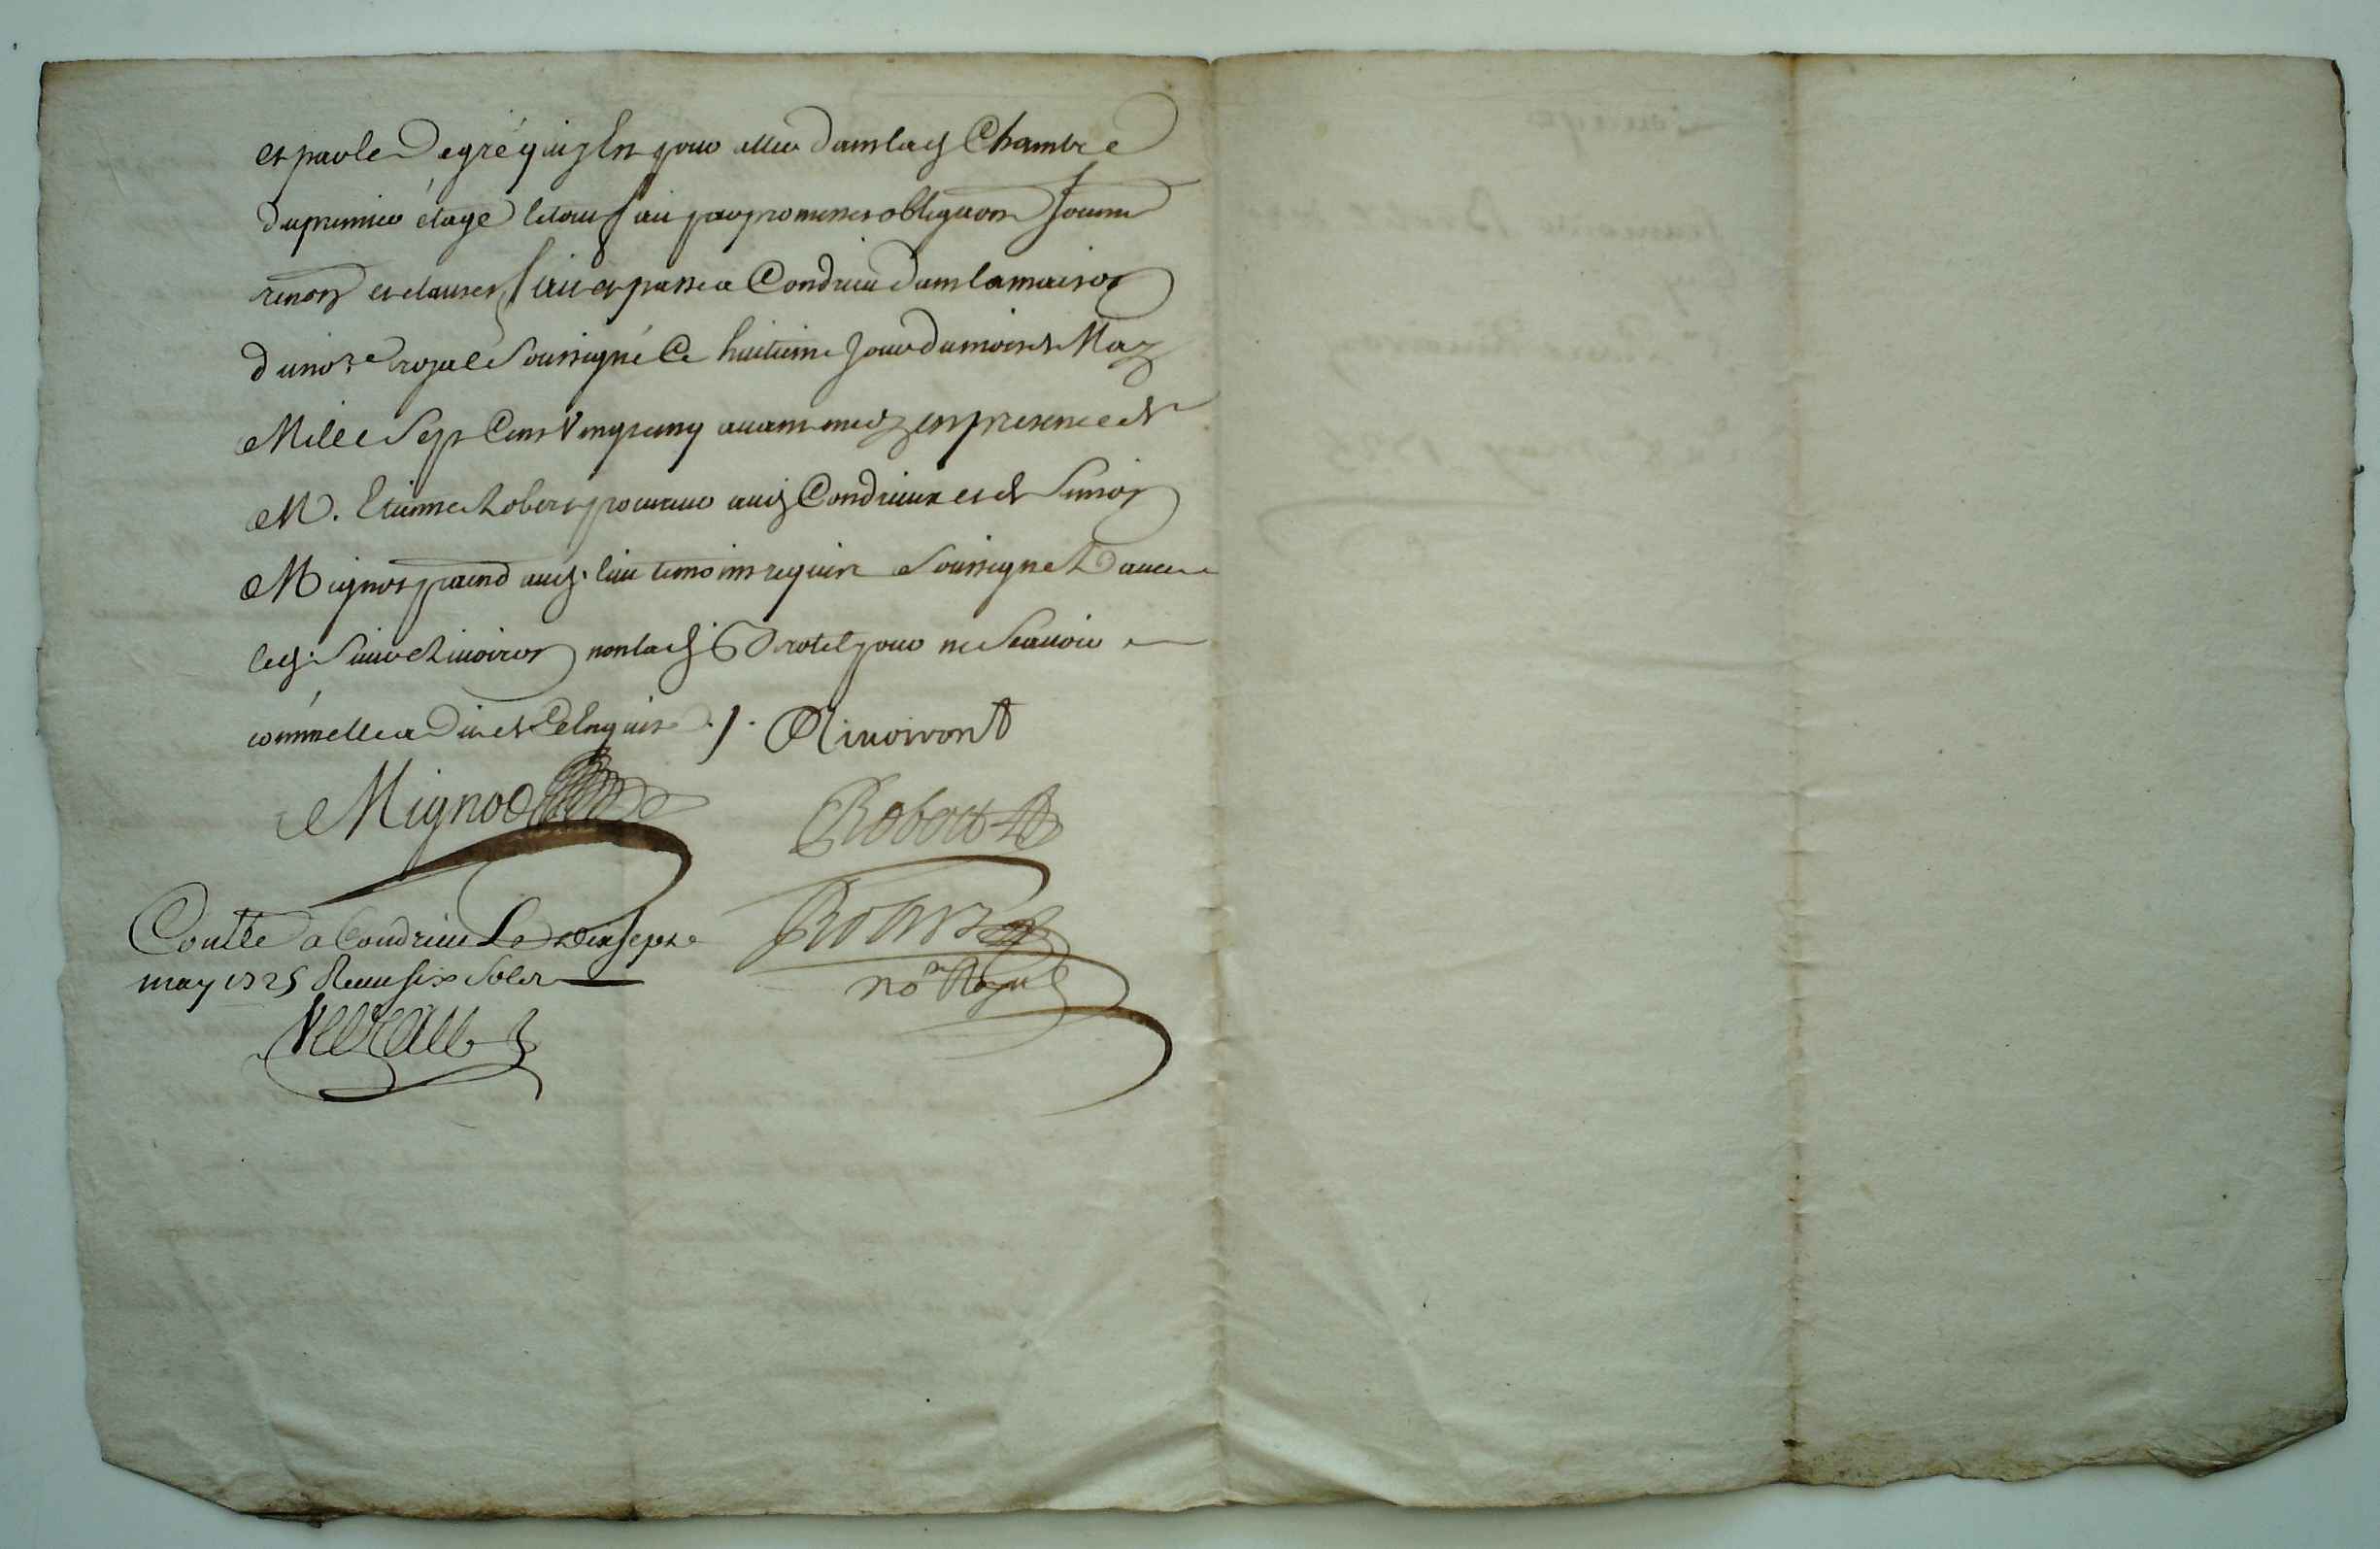 et par le degré qui y est pour aller dans lad Chambre
du premier étage le tout fait par promesses obligaon Soum
renon et clauses fait et passe a Condrieu dans la maison
du nore royal Soussigné le huitieme Jour du mois de May
Mille Sept Cens Vingt cinq avant midy en presence de
M. Etienne Robert procureur aud Condrieux et de Simon
Mignot aud. lieu temoins requis Soussignes avec
led. Sieur Rivoiron non lad. Drotel pour ne Scavoir
comme elle a dit de ce Enquise ./. Rivoiron
Mignot
Robert
nore Royal
Conllé a Condrieu Le dix sept
may 1725 Receu six Sols